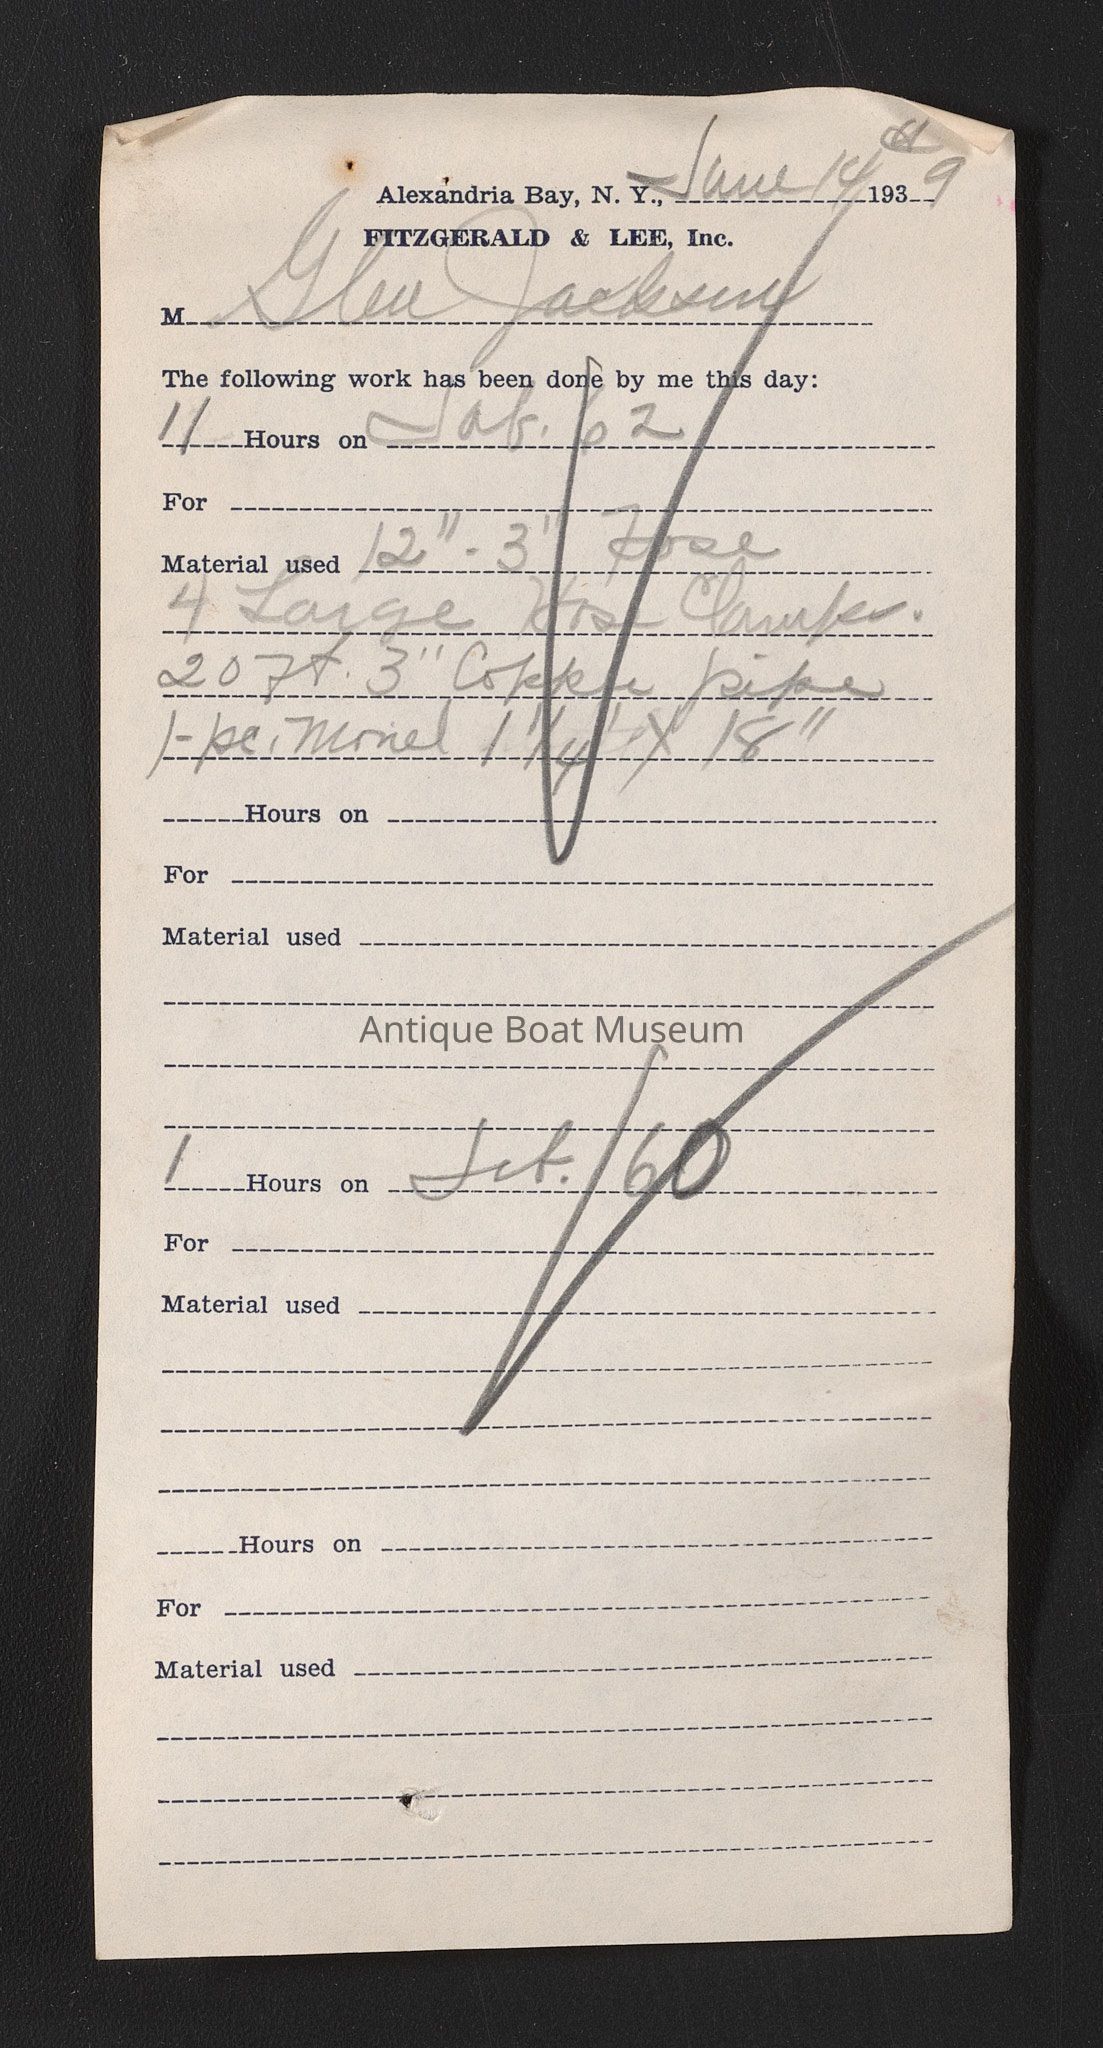 Alexandria Bay, N. Y., June 14th 1939
FITZGERALD & LEE, Inc.
M Glen Jackson
The following work has been done by me this day:
11 Hours on Job. 62
For
Material used 12" - 3" Hose
4 Large Hose Clamps.
20 Ft. 3" Copper pipe
1-pc. Monel 1 1/4" X 18"
Hours on
For
Material used
Antique Boat Museum
1 Hours on 60
For
Material used
Hours on
For
Material used